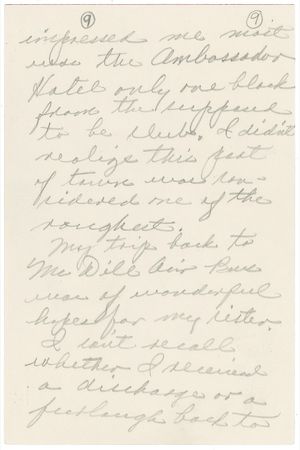 9 9
impressed me most
was the Ambassador
Hotel only one block
from the suppose
to be slub. I didn't
realize this part
of town was con-
sidered one of the
roughest.
My trip back to
Mc Dill Air Bas
was of wonderful
hopes for my sister.
I isn't recall
whether I received
a discharge or a
furlough back to